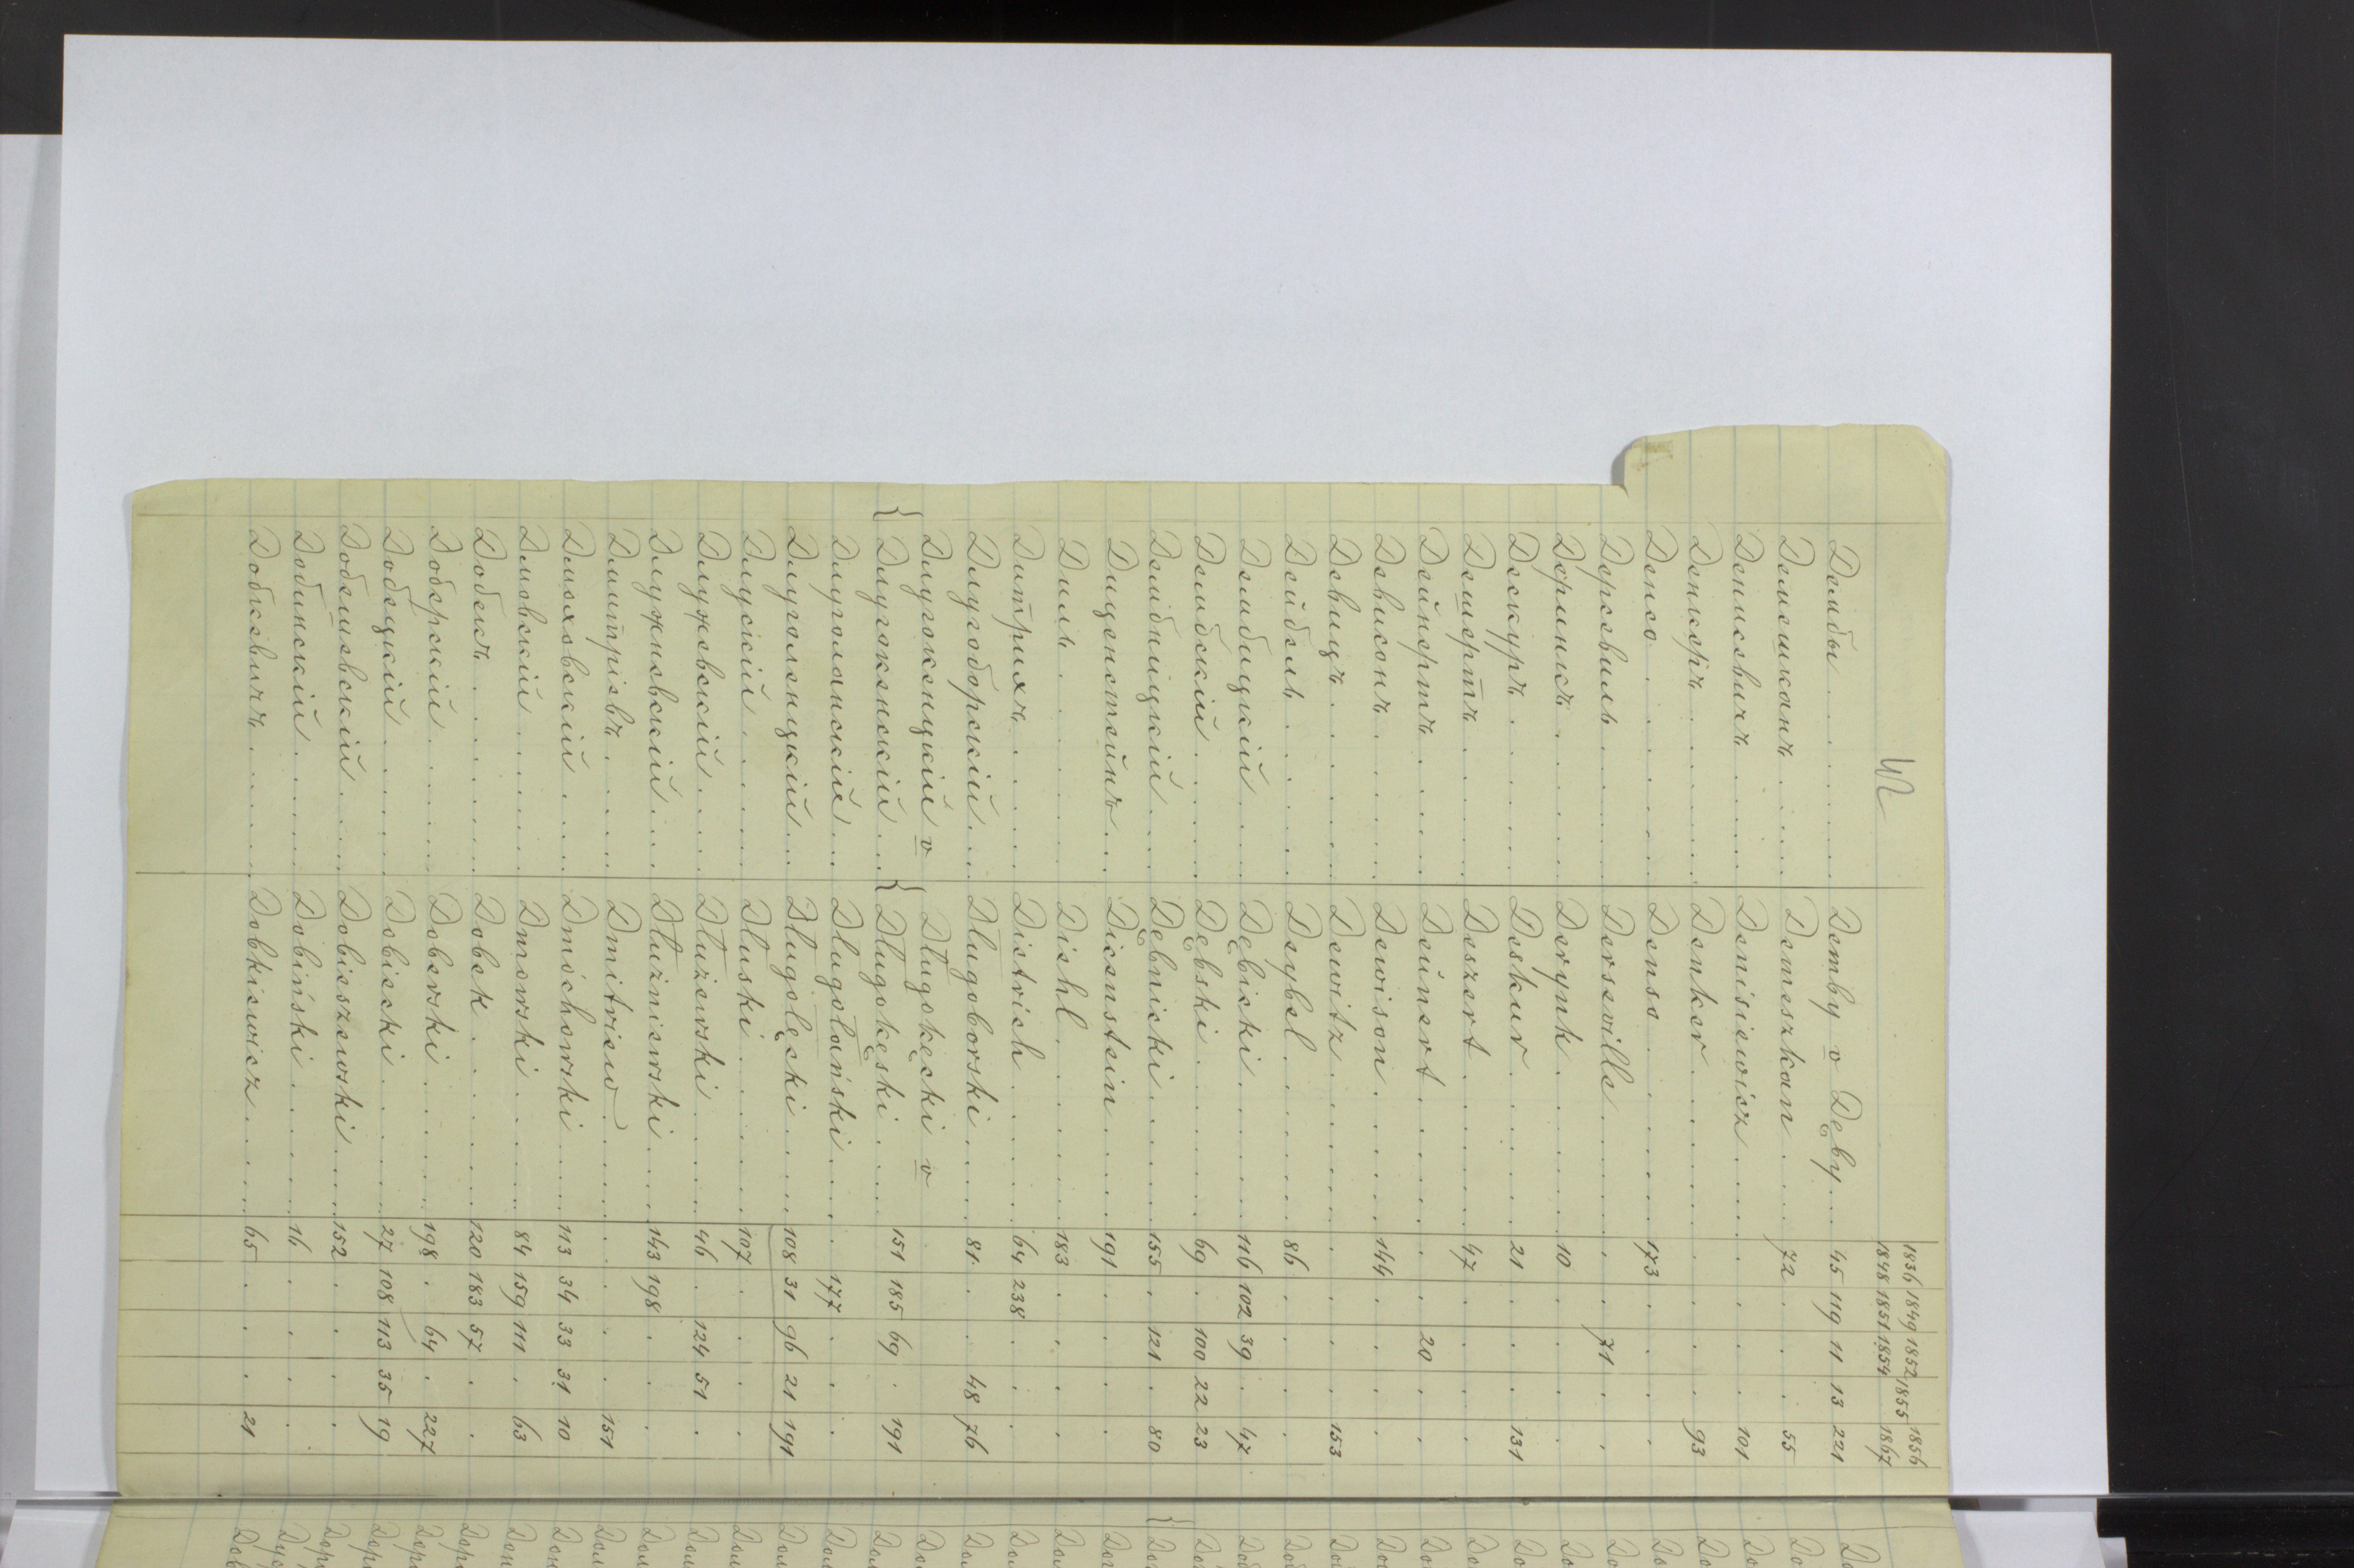 1836 1849 1852 1855 1856
1848 1851 1854 1867
Дембы . . . . . Demby v Dęby . . . 45 119 11 13 221
Демешкант . . . . . Demeszkan . . . 72 . . . 55
Денисевичъ . . . . . Denisiewicz . . . . . . . 101
Денкеръ . . . . . Denker . . . . . . . 93
Денсо . . . . . Denso . . . . . 173 . . . .
Дерсевиль . . . . . Dersevills . . . . . . 71 . .
Дериикъ . . . . . Derynk . . . . . 10 . . . .
Дескуръ . . . . . Deskur . . . . . 21 . . . 131
Дешертъ . . . . . Deszert . . . . . 47 . . . .
Дейнертъ . . . . . Deŭnert . . . . . . 20 . .
Девисонъ . . . . . Dewison . . . . . 144 . . . .
Девицъ . . . . . Dewitz . . . . . . . . 153
Дейбель . . . . . Deybel . . . . . 86 . . . .
Дембицкій . . . . Dębicki . . . . . 116 102 39 . 47
Дембскій . . . . . Dębski . . . . . 69 . 100 22 23
Дембницкій . . . . Dębnicki . . . . . 155 . 121 . 80
Диценстейнъ . . . Dicenstein . . . . 191 . . . .
Диль . . . . . Diehl . . . . . 183 . . . .
Дитрихъ . . . . . Dietrich . . . . . 64 238 . . .
Длугоборскій . . . Długoborski . . . . 81 . . 48 76
Длугокенцкій v Długokęcki v
Длугокенскій . . . Długokęski . . . . 151 185 69 . 191
Длуголанскій . . . Długolański . . . . 177 . . .
Длуголенцкій . . . Długolęcki . . . . 108 31 96 21 191
Длускій . . . . . Dluski . . . . . 107 . . . .
Длужевскій . . . . Dłużewski . . . . . 46 . 124 51 .
Длужневскій . . . . Dłużniewski . . . . 143 198 . . .
Дмитріевъ . . . . . Dmitriew . . . . . . . . 151
Дмоховскій . . . . Dmóchowski . . . . 113 34 33 31 10
Дмовскій . . . . . Dmowski . . . . . 84 159 111 . 63
Добекъ . . . . . Dobek . . . . . 120 183 57 . .
Доберскій . . . . . Doberski . . . . . 198 . 64 . 227
Добецкій . . . . . Dobiecki . . . . . 27 108 113 35 19
Добешевскій . . . . Dobieszewski . . . . 152 . . . .
Добинскій . . . . . Dobiński . . . . . 16 . . . .
Добкевичъ . . . . . Dobkiewicz . . . . . 65 . . . 21